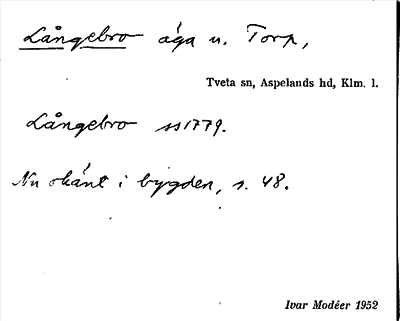 Långebro äga u. Torp,
Tveta sn, Aspelands hd, Klm. l.
Långebro ss 1779.
Nu okänt i bygden, s. 48.
Ivar Modéer 1952